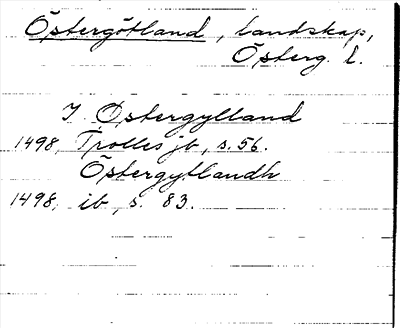 Östergötland, landskap,
Österg. l.
I Østergylland
1498, Trolles jb, s. 56.
Östergytlandh
1498, ib, s. 83.